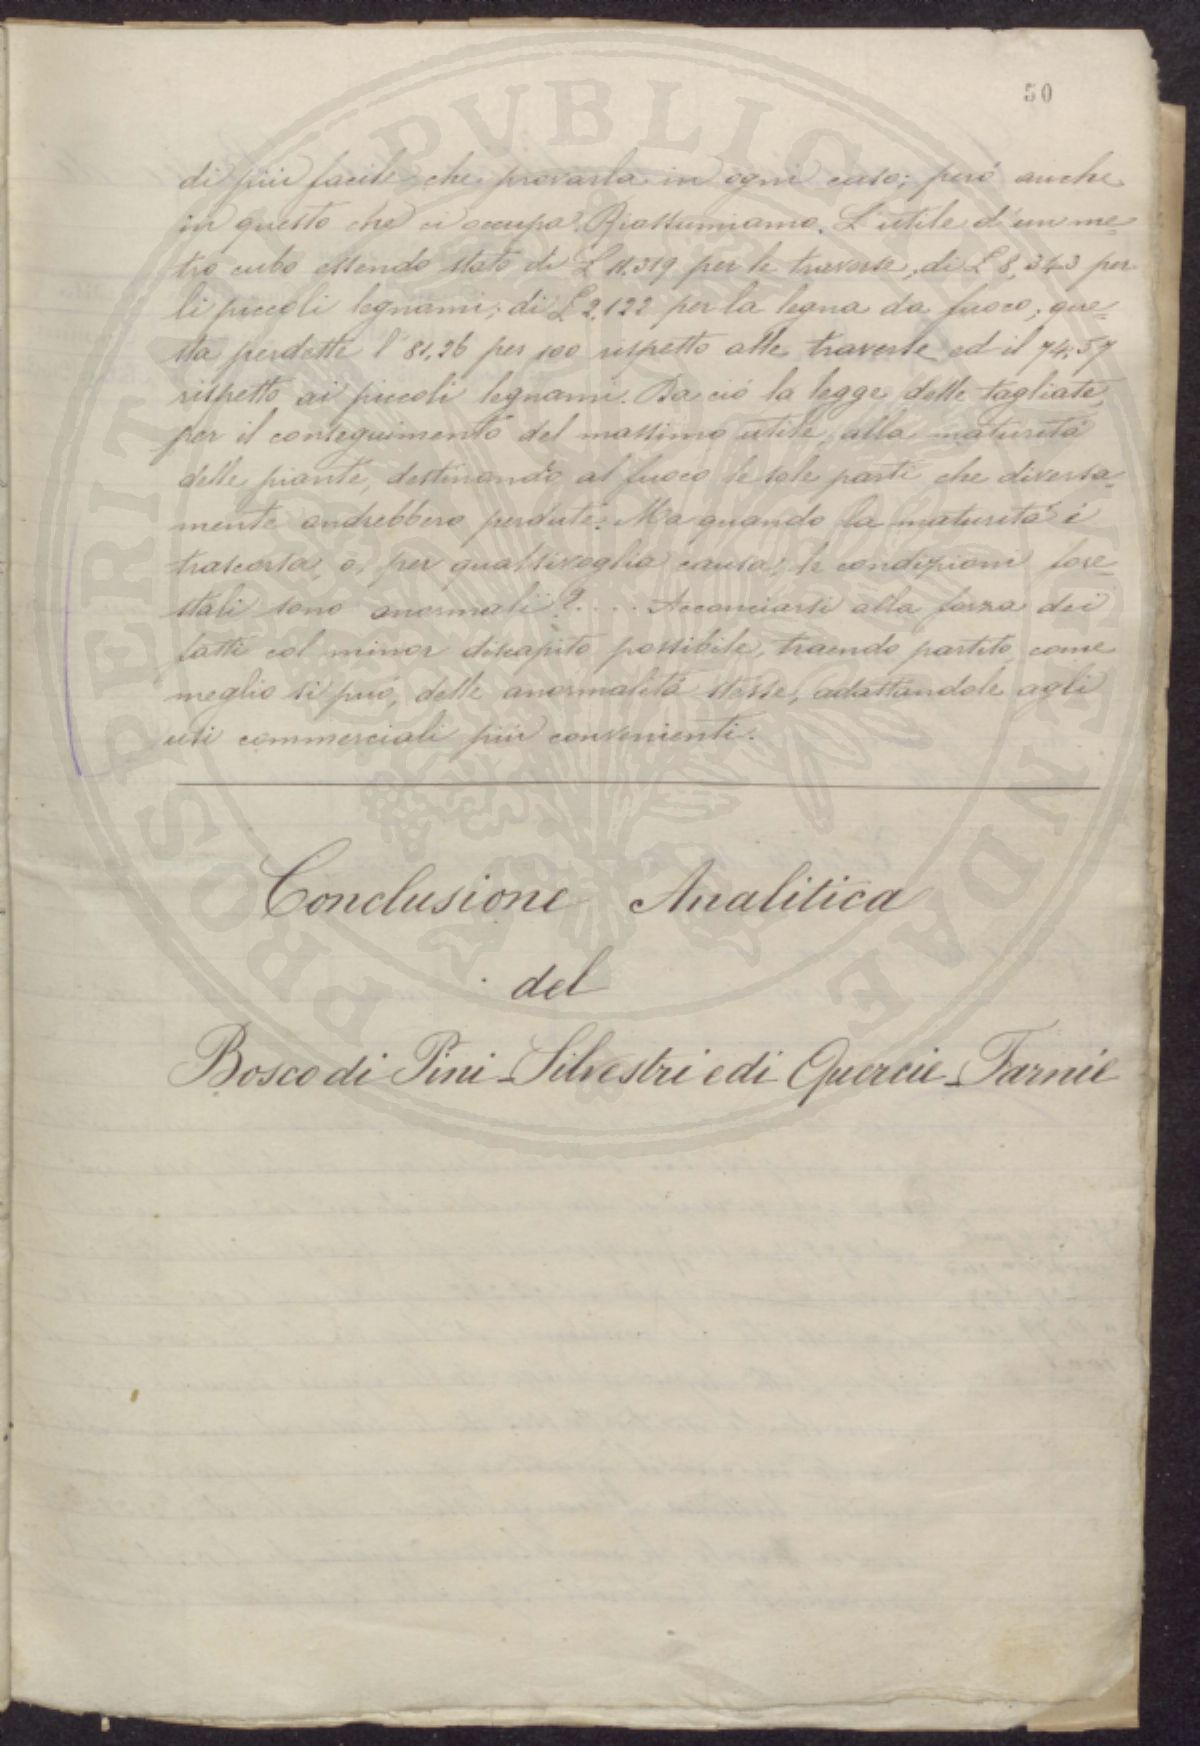 50
di più facile che provarla in ogni caso; però anche
in questo che ci occupa. Riassumiamo. L'utile d'un me=
tro cubo essendo stato di £ 11,319 per le traverse, di £ 8,343 per
li piccoli legnami; di £ 2,122 per la legna da fuoco; que=
sta perdette l'81,26 per 100 rispetto alle traverse ed il 74,57
rispetto ai piccoli legnami. Da ciò la legge delle tagliate
per il conseguimento del massimo utile, alla maturità
delle piante, destinando al fuoco le sole parti che diversa=
mente andrebbero perdute. Ma quando la maturità è
trascorsa, o, per qualsivoglia causa, le condizioni fore=
stali sono anormali?.... Acconciarsi alla forza dei
fatti col minor discapito possibile, traendo partito, come
meglio si può, delle anormalità stesse, adattandole agli
usi commerciali più convenienti.
Conclusione Analitica
del
Bosco di Pini-Silvestri e di Quercie-Farnie
PROSPERITATI PVBLICAE AVDENDAE